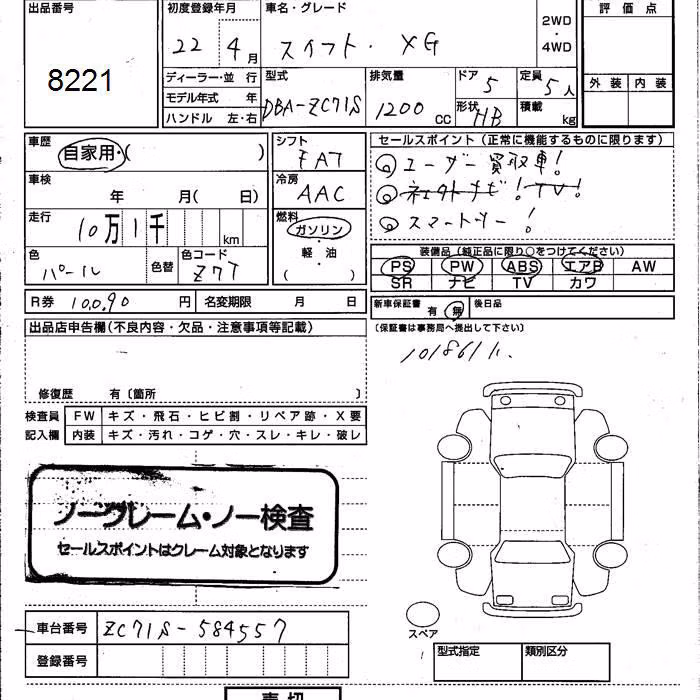 出品番号
8221
初度登録年月
22 4月
車名・グレード
スイフト・XG
2WD
・
4WD
評価点
外装 内装
ディーラー・並 行
モデル年式 年
ハンドル 左・右
型式
DBA-ZC71S
排気量
1200 CC
ドア 5
形状 HB
定員 5人
積載 kg
車歴
自家用・( )
車検
年 月( 日)
走行
10万1千 km
色
パール
色替
色コード
Z7T
シフト
FAT
冷房
AAC
燃料
ガソリン
軽・油
( )
セールスポイント(正常に機能するものに限ります)
◎ユーザー買取車!
◎ネェクトナビ!TV!
◎スマートキー!
装備品(純正品に限り○をつけてください)
PS PW ABS エアB AW
SR ナビ TV カワ
R券 10,090 円 名変期限 月 日
新車保証書 有 無 後日品
(保証書は事務局へ提出して下さい)
出品店申告欄(不良内容・欠品・注意事項等記載)
修復歴 有〔箇所 〕
検査員 FW キズ・飛石・ヒビ割・リペア跡・X要
記入欄 内装 キズ・汚れ・コゲ・穴・スレ・キレ・破レ
101861k.
ノークレーム・ノー検査
セールスポイントはクレーム対象となります
車台番号 ZC71S-584557
登録番号
スペア
型式指定 類別区分
売切